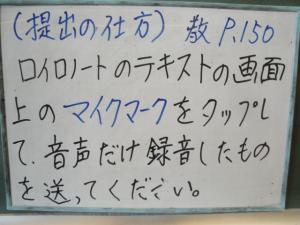 (提出の仕方) 教 P.150
ロイロノートのテキストの画面
上のマイクマークをタップし
て、音声だけ録音したもの
を送ってください。